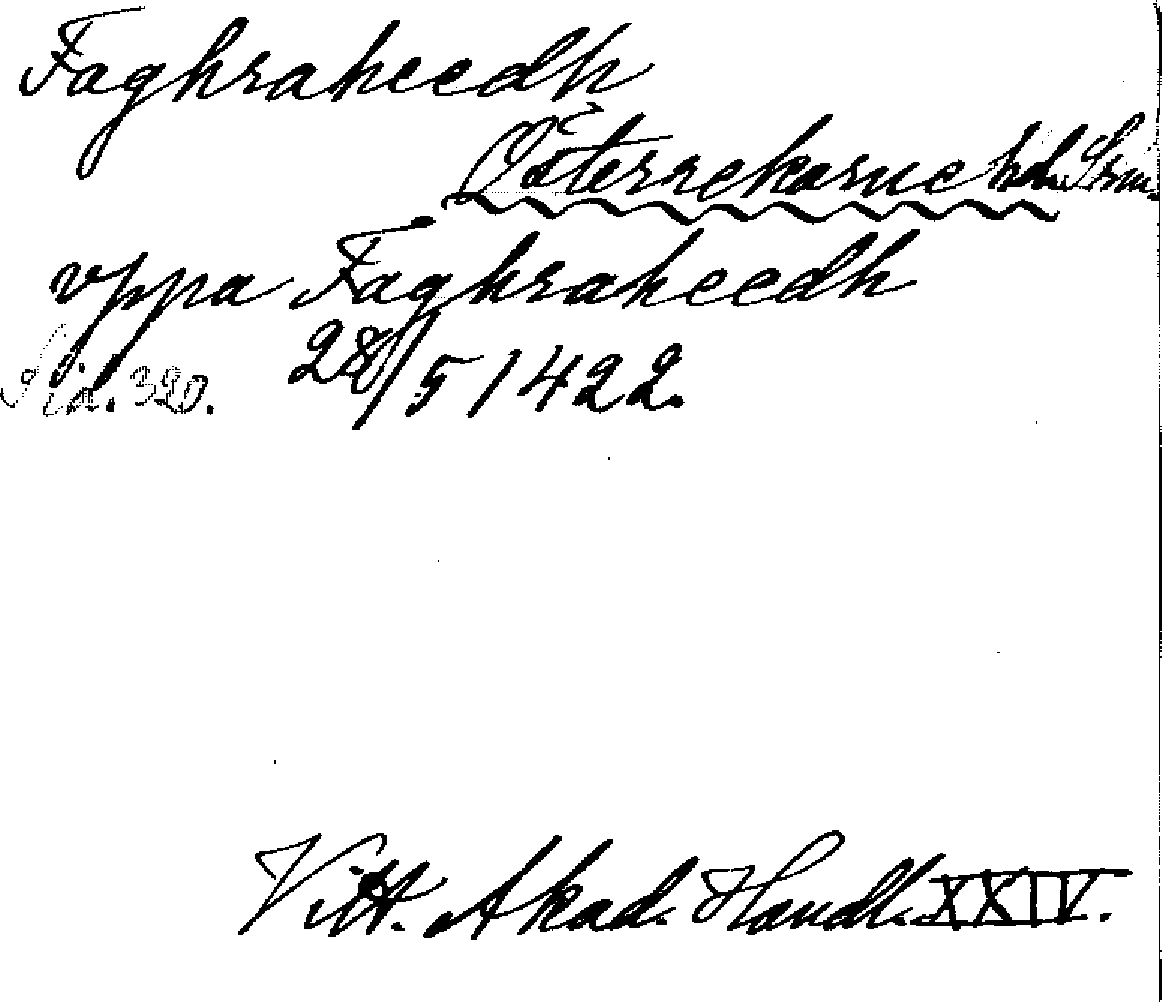 Faghraheedh
Österrekarne hd. Srm.
vppa Faghraheedh
Sid. 320. 28/5 1422.
Vitt. Akad. Handl. XXIV.